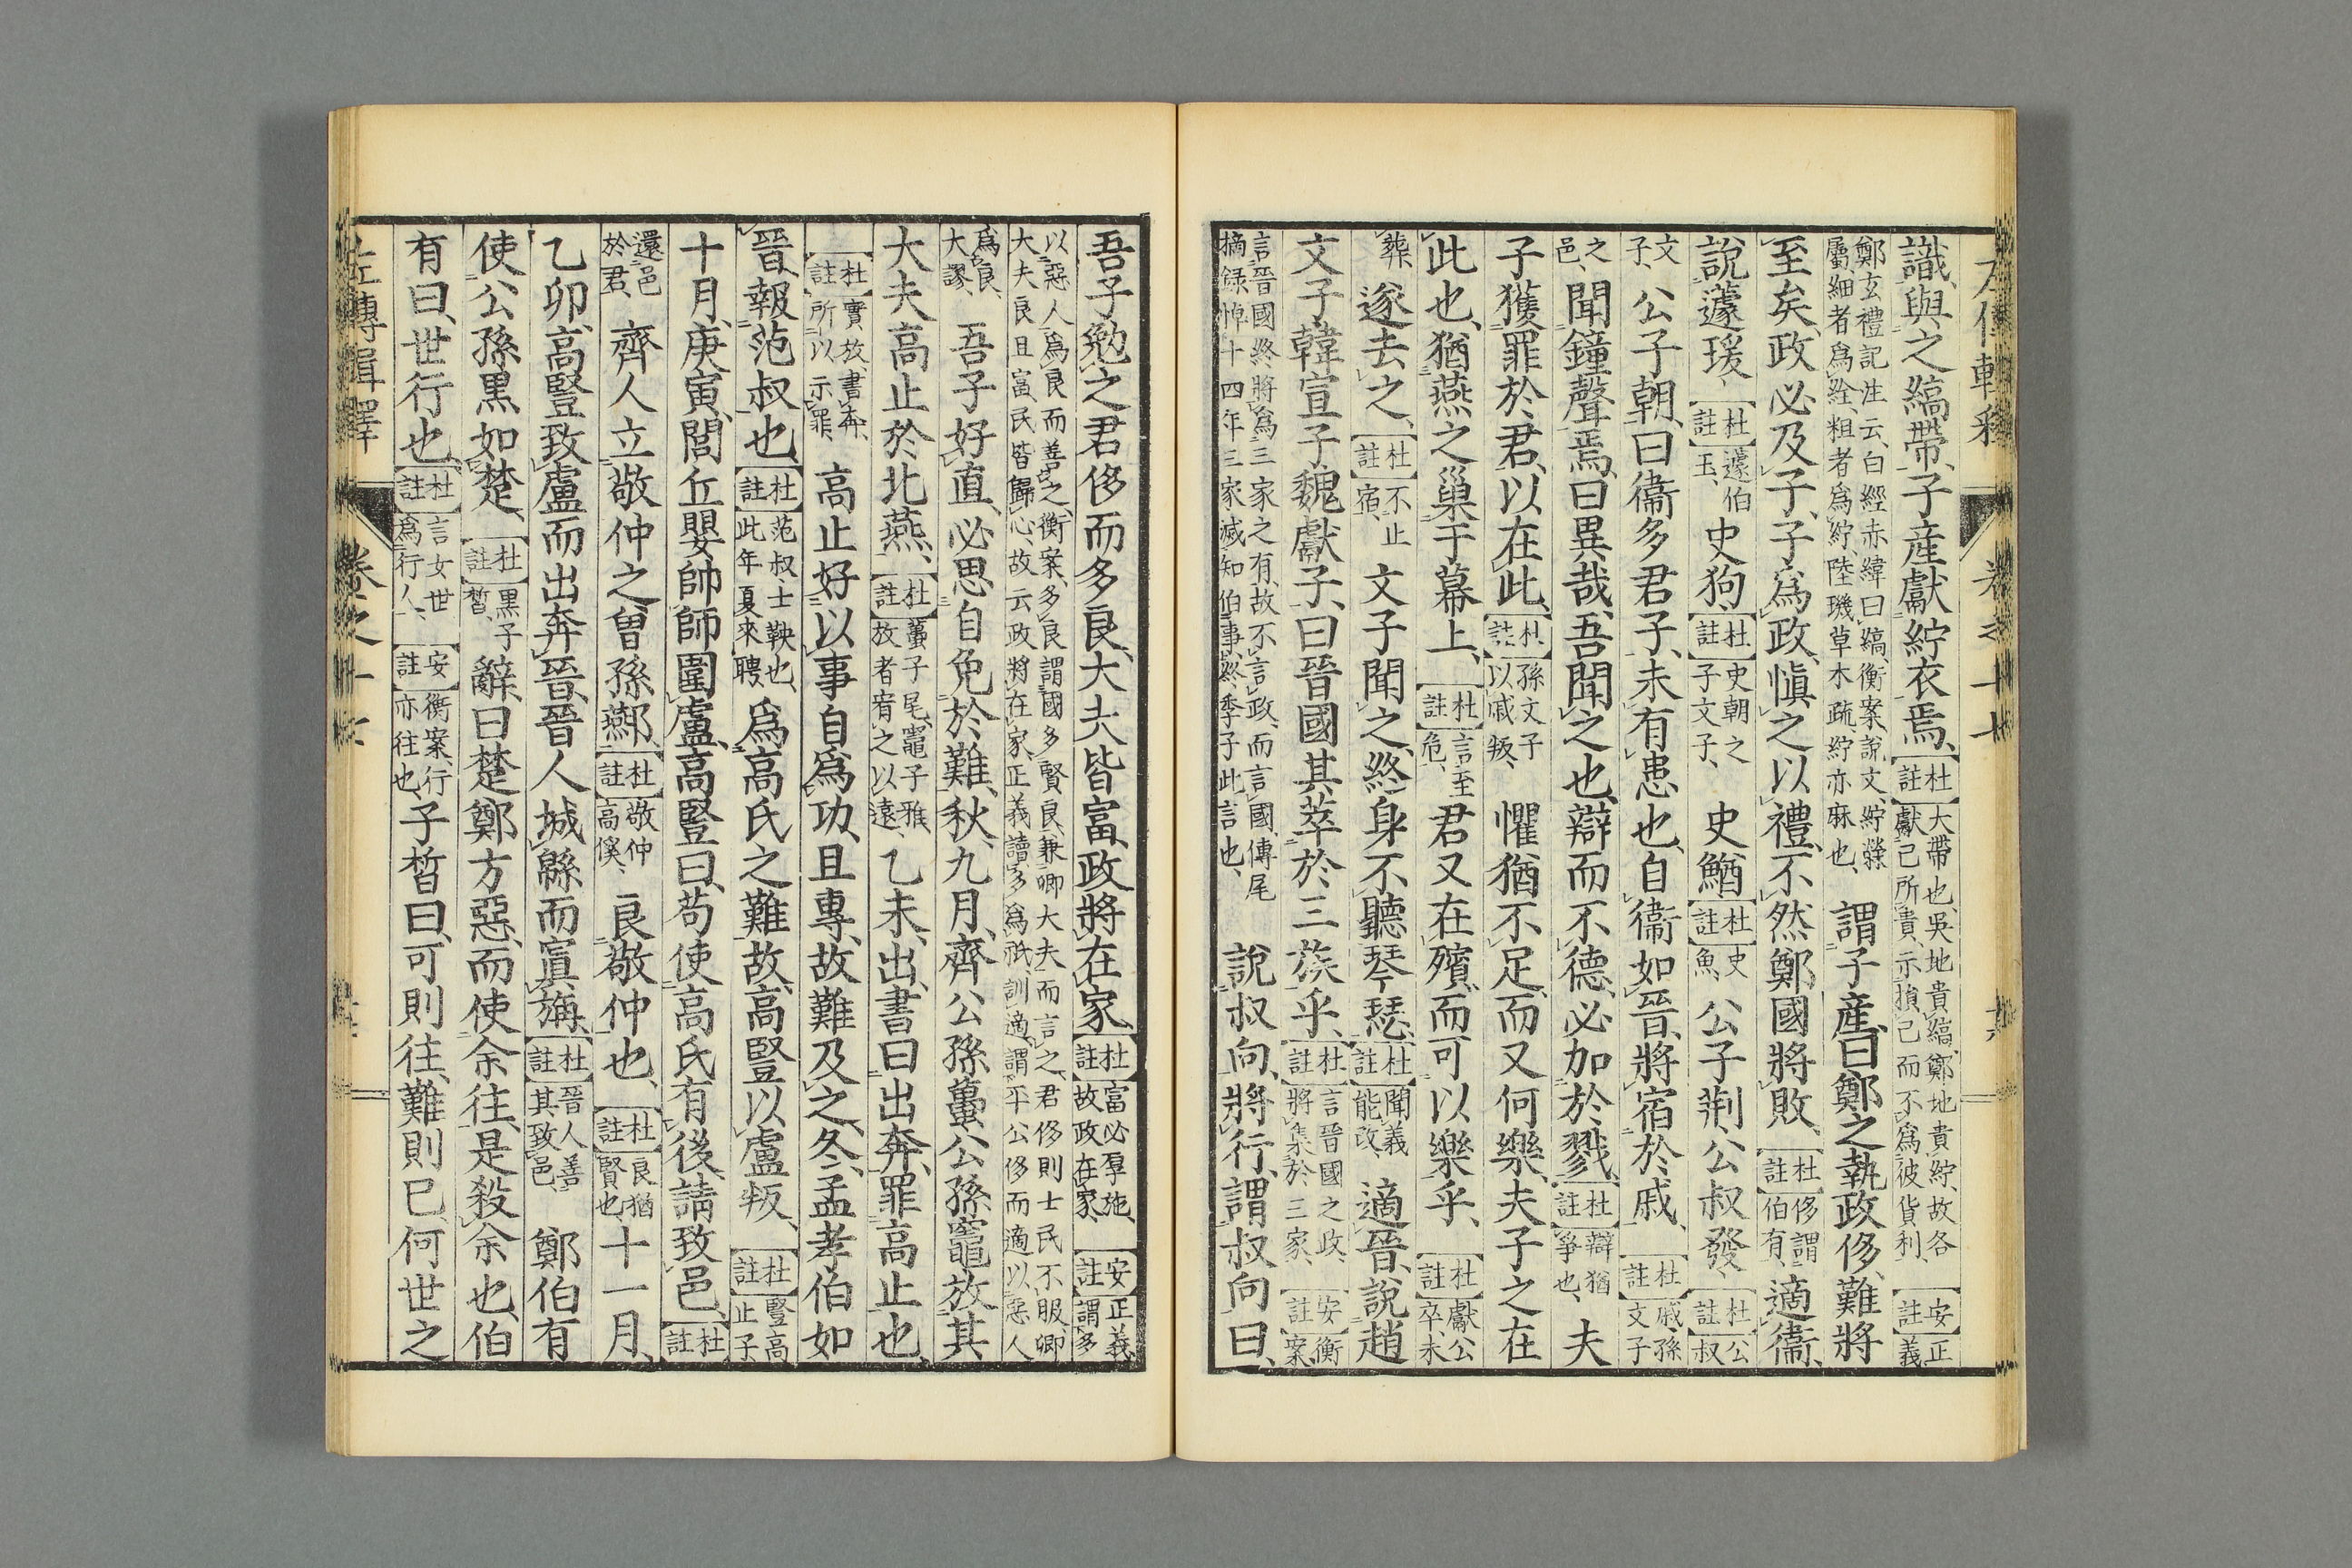 識、與之縞帶、子産獻紵衣焉、【杜註】大帶也、吳地貴縞、鄭地貴紵、故各獻己所貴、示損己而不爲彼貨利、【安註】正義
鄭玄禮記注云、白經赤緯曰縞、衡案、說文、紵、檾屬、細者爲絟、粗者爲紵、陸璣草木疏、紵亦麻也、謂子産曰、鄭之執政侈、難將
至矣、政必及子、子爲政、愼之以禮、不然鄭國將敗、【杜註】侈謂伯有、適衞、
說蘧瑗、【杜註】蘧伯玉、史狗、【杜註】史朝之子文子、史鰌【杜註】史魚、公子荆、公叔發、【杜註】公叔
文子、公子朝、曰衞多君子、未有患也、自衞如晉、將宿於戚、【杜註】戚、孫文子
之邑、聞鐘聲焉、曰異哉、吾聞之也、辯而不德、必加於戮、【杜註】辯猶爭也、夫
子獲罪於君、以在此、【杜註】孫文子以戚叛、懼猶不足、而又何樂、夫子之在
此也、猶燕之巢于幕上、【杜註】言至危、君又在殯、而可以樂乎、【杜註】獻公卒、未
葬、遂去之、【杜註】不止宿、文子聞之、終身不聽琴瑟、【杜註】聞義能改、適晉、說趙
文子韓宣子魏獻子、曰晉國其萃於三族乎、【杜註】言晉國之政、將集於三家、【安註】衡案、
言晉國終將爲三家之有、故不言政、而言國、傳尾摘錄悼十四年三家滅知伯事、終季子此言也、說叔向、將行、謂叔向曰、
吾子勉之、君侈而多良、大夫皆富、政將在家、【杜註】富必厚施、故政在家、【安註】正義謂多
以惡人爲良而善之、衡案、多良謂國多賢良、兼卿大夫而言之、君侈則士民不服、卿大夫良且富、民皆歸心、故云政將在家、正義讀多爲祇、訓適、謂平公侈而適以惡人
爲良、大謬、吾子好直、必思自免於難、秋、九月、齊公孫蠆公孫竈放其
大夫高止於北燕、【杜註】蠆子尾、竈子雅、放者宥之以遠、乙未、出、書曰出奔、罪高止也、
【杜註】實放、書奔、所以示罪、高止好以事自爲功、且專、故難及之、冬、孟孝伯如
晉、報范叔也、【杜註】范叔、士鞅也、此年夏來聘、爲高氏之難故、高豎以盧叛、【杜註】豎高止子、
十月、庚寅、閭丘嬰帥師圍盧、高豎曰、苟使高氏有後、請致邑、【杜註】
還邑於君、齊人立敬仲之曾孫酀、【杜註】敬仲高傒、良敬仲也、【杜註】良猶賢也、十一月、
乙卯、高豎致盧而出奔晉、晉人城緜而寘旃、【杜註】晉人善其致邑、鄭伯有
使公孫黑如楚、【杜註】黑子皙、辭、曰楚鄭方惡、而使余往、是殺余也、伯
有曰、世行也、【杜註】言女世爲行人、【安註】衡案、行亦往也、子皙曰、可則往、難則已、何世之
左傳輯釋　卷之十七